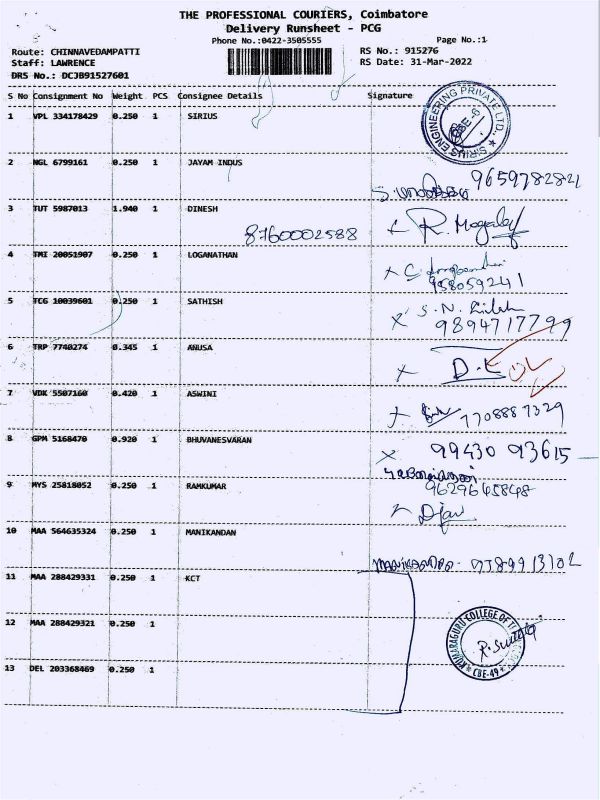 THE PROFESSIONAL COURIERS, Coimbatore
Delivery Runsheet - PCG
Phone No.:0422-3505555 Page No.:1
Route: CHINNAVEDAMPATTI RS No.: 915276
Staff: LAWRENCE RS Date: 31-Mar-2022
DRS No.: DCJB91527601
S No Consignment No Weight PCS Consignee Details Signature
1 VPL 334178429 0.250 1 SIRIUS
SIRIUS ENGINEERING PRIVATE LTD. CBE-6
2 NGL 6799161 0.250 1 JAYAM INDUS
9659782821
3 TUT 5987013 1.940 1 DINESH
8760002588 R. Mogaley
4 TMI 20051907 0.250 1 LOGANATHAN
958059241
5 TCG 10039601 0.250 1 SATHISH
S.N.
9894717799
6 TRP 7740274 0.345 1 ANUSA
7 VDK 5507160 0.420 1 ASWINI
7708887329
8 GPM 5168470 0.920 1 BHUVANESVARAN
99430 93615
9 MYS 25818052 0.250 1 RAMKUMAR
9629645848
10 MAA 564635324 0.250 1 MANIKANDAN
11 MAA 288429331 0.250 1 KCT
12 MAA 288429321 0.250 1
KUMARAGURU COLLEGE OF
CBE-49
13 DEL 203368469 0.250 1